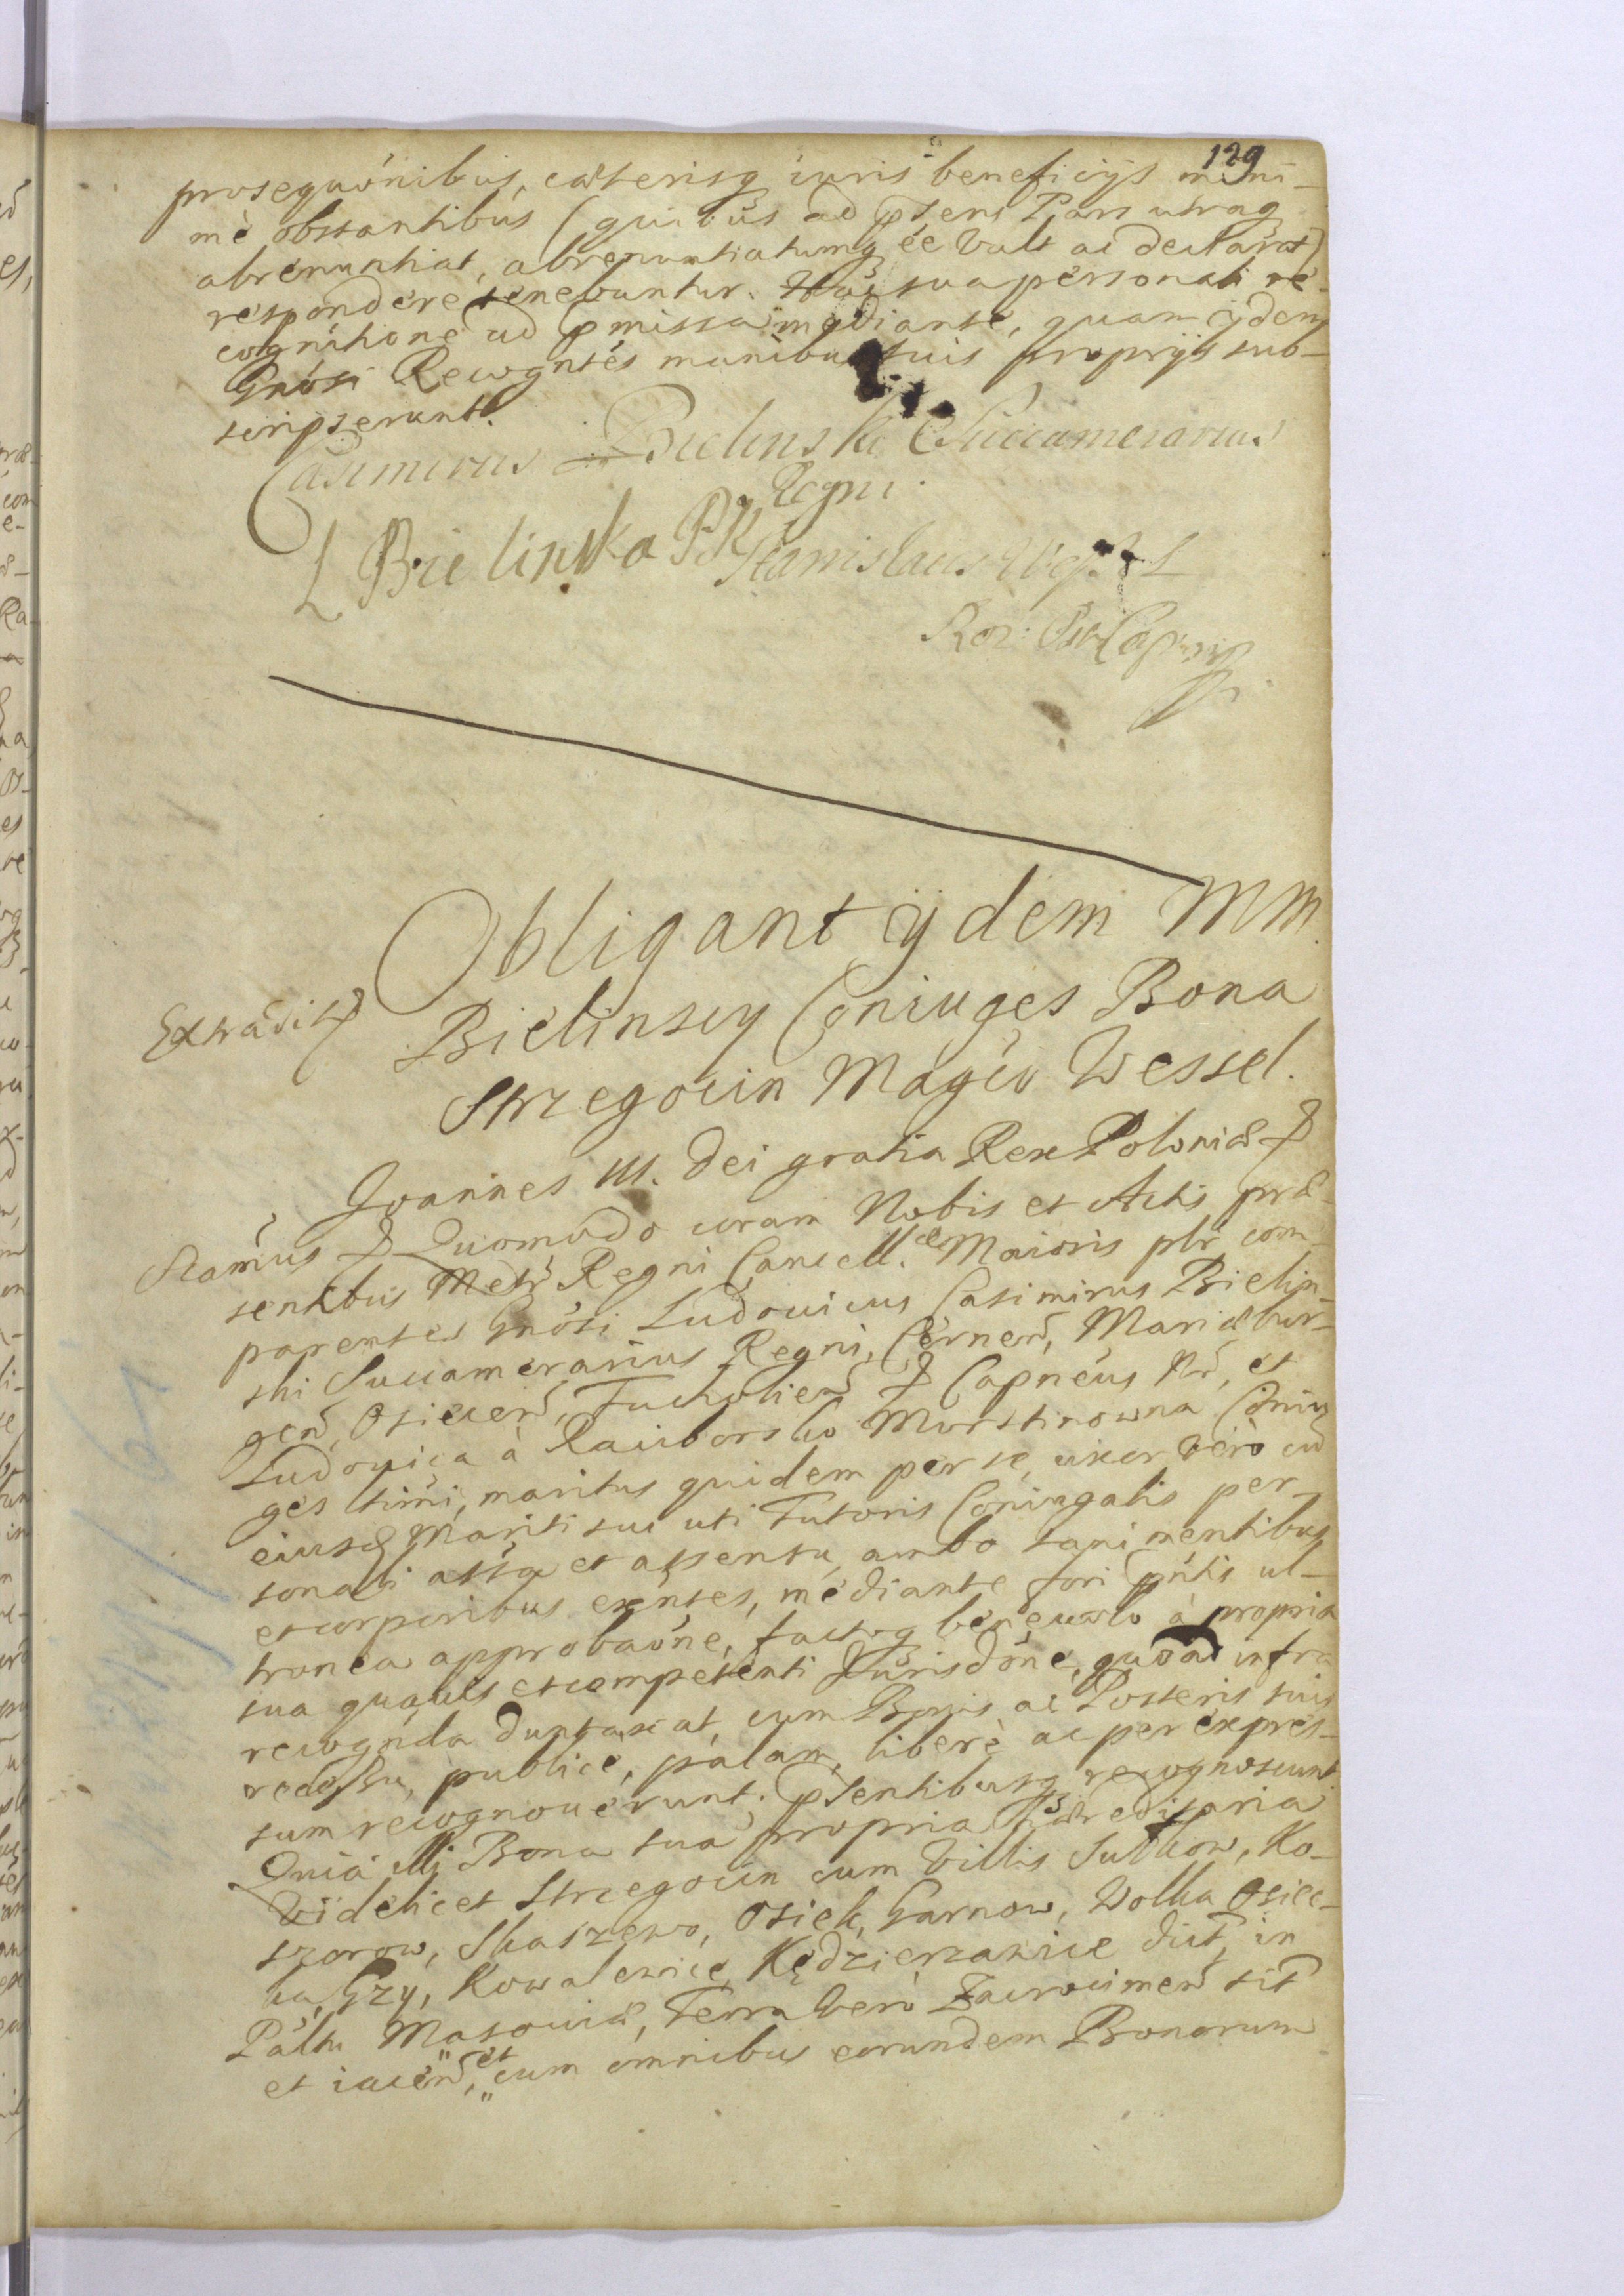 129
prosequónibus, cæterisq iuris beneficijs mini-
mè obstantibus (quibus ad psens Pars utraq
abrenuntiat, abrenuntiatumq éé vult ac declarat)
respondere tenebuntur. Hac sua personali re-
cognitione ad pmissa mediante, quam ijdem
Gnósi Recogntés manibus suis proprijs sub-
scripserunt.
Casimirus Bielinski Succamerarius
Regni.
L Bielinska PK Stanislaus
Roz:
Obligant ijdem MM.
Bielinscy Coniuges Bona
Extradit
Strzegocin Magco Wessel.
Joannes III. Dei gratia Rex Poloniæ
Stamus Quomodo coram Nobis et Actis præ-
sentibus Metr Regni Cancell.æ Maioris plr com-
parentes Gnósi Ludovicus Casimirus Bielin-
ski Succamerarius Regni, Cernen, Mariæbur-
gen, Osiecen, Tucholien Capneus Nr, et
Ludovica à Raciborsko Morstinowna Coniu-
ges ltimi, maritus quidem per se, uxor verò cu
eiusd Mariti sui uti Tutoris Coniugalis per-
sonali assa et assensu, ambo sani mentibus
et corporibus exntes, mediante fori pntis ul-
tronea approbaóne, factoq benevolo à propria
sua quavis et competenti Jurisdóne, quoad infra
recognda duntaxat, cum Bonis ac Posteris suis
recessu, publicè, palam, liberè ac per expres-
sum recognoverunt, psentibusq recognoscunt.
Quia illi Bona sua propria hæreditaria
Videlicet Strzegocin cum Villis Sulkow, Ko-
szorow, Skaszewo, Osiek, Garnow, Wolka Osiec-
ka, Gzy, Kowalewice, Kędzierzawice dict, in
Paltu Masoviæ, Terra verò Zacrocimen sit
et iacen, et cum omnibus eorundem Bonorum